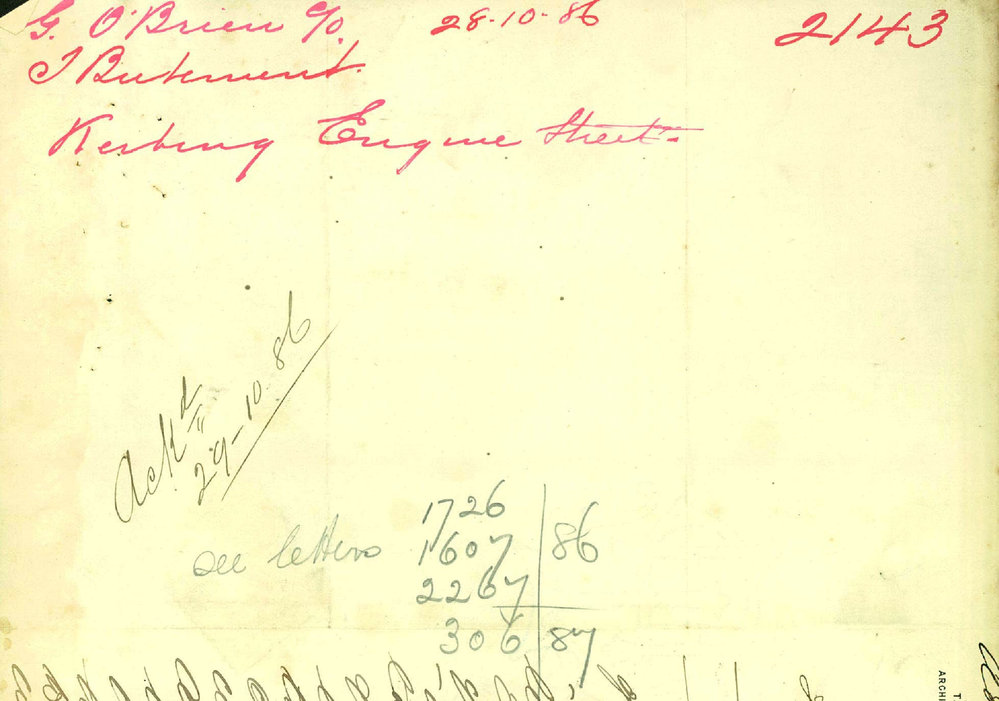 G. O'Brien c/o. 28-10-86 2143
J Butement.
Kerbing Engine Street
Ackd 29-10-86
see letters 1726
1607 86
2267
306 87
T.
ARCHI